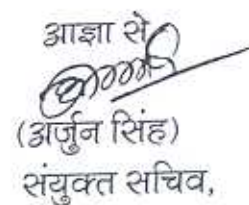 आज्ञा से
(अर्जुन सिंह)
संयुक्त सचिव,